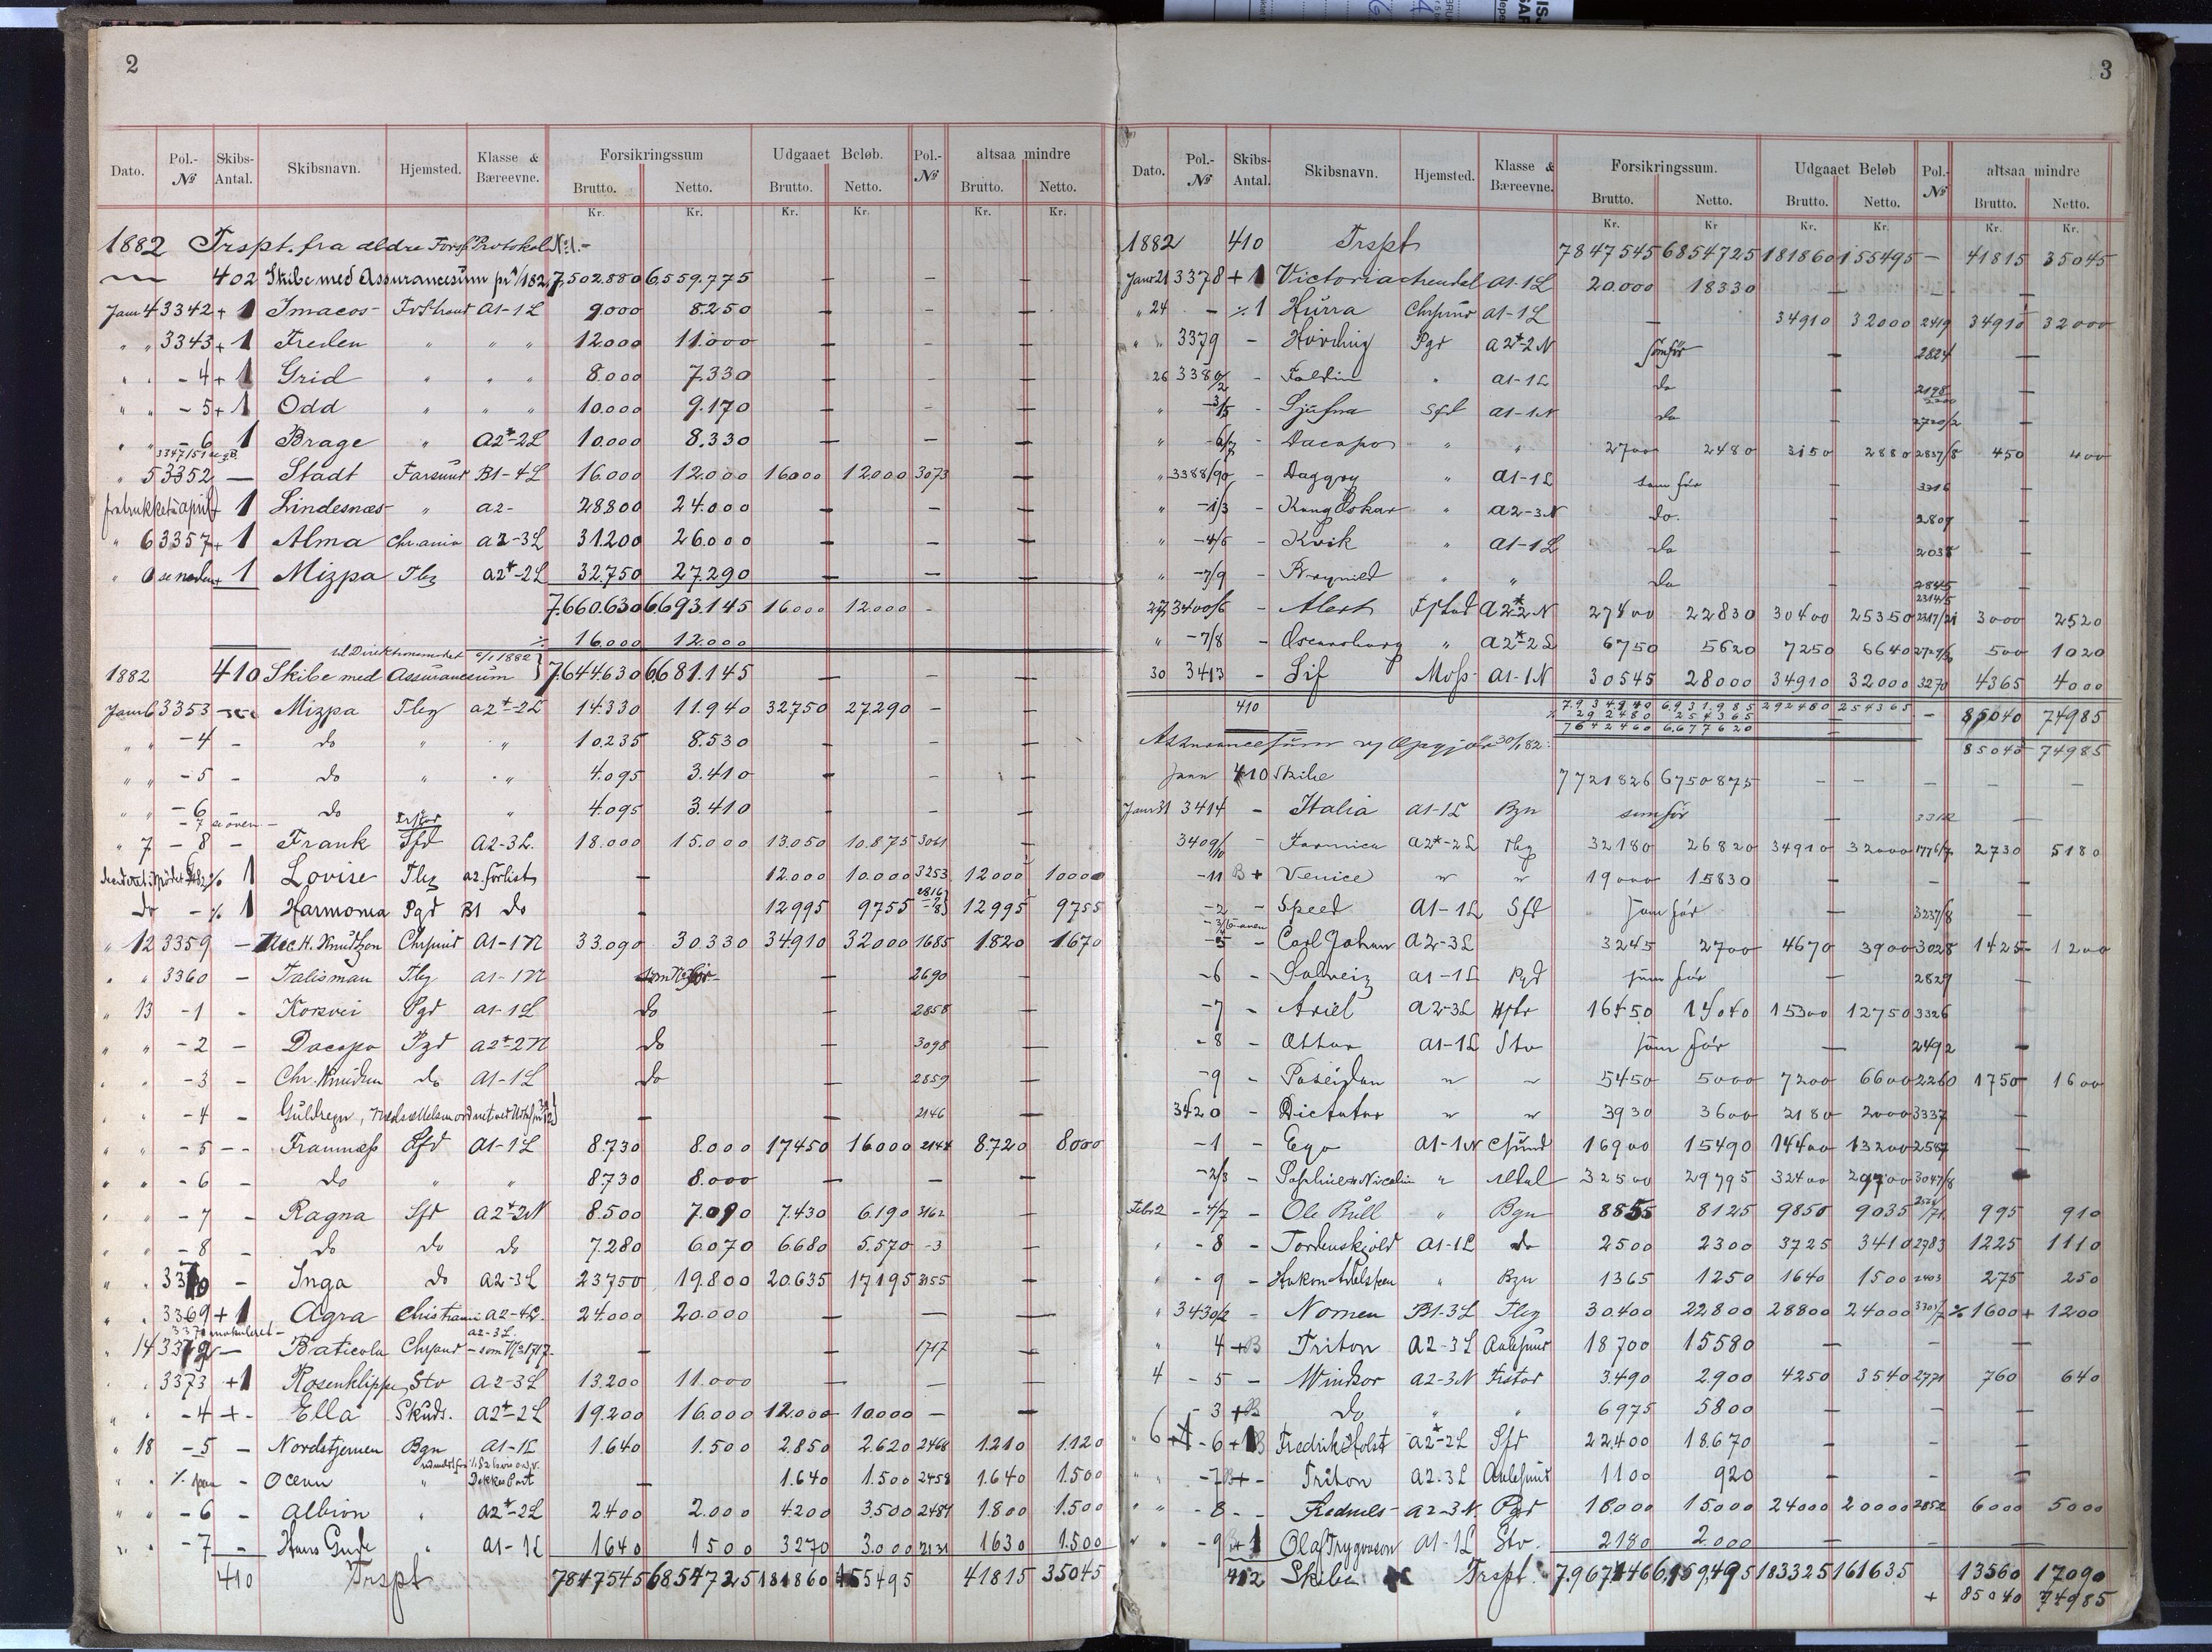 2
Dato. Pol.- № Skibs- Antal. Skibsnavn. Hjemsted. Klasse & Bæreevne. Forsikringssum Brutto. Netto. Udgaaet Beløb. Brutto. Netto. Pol.- № altsaa mindre Brutto. Netto.
Kr. Kr. Kr. Kr. Kr. Kr.
1882 Trspt. fra ældre Forsk Protokol №1.-
402 Skibe med Assurancesum pr 1/1 82 7,502.880 6,559.775 — — — —
Janr 4 3342 + 1 Imacos - Fdstrand A1-1L 9000 8.250 — — —
" " 3343 + 1 Freden " " " 12000 11.000 — — —
" " - 4 + 1 Grid " " " 8.000 7.330 — — —
" " - 5 + 1 Odd " " " 10.000 9.170 — — —
" " - 6 1 Brage " A2*-2L 10.000 8.330 — — —
" 5 3352 — Stadt Farsund B1-4L 16.000 12.000 16000 12000 3073 —
1 Lindesnæs - " A2- 28800 24.000 — — —
" 6 3357 + 1 Alma Chr.ania A2-3L 31.200 26.000 — — —
" 6 se neden + 1 Mizpa Tbg A2*-2L 32.750 27.290 — — —
7.660.630 6,693.145 16.000 12.000 -
⁒ 16.000 12.000
til Direktionsmødet 6/1 1882
1882 410 Skibe med Assurancesum } 7.644.630 6,681.145 — — —
Janr 6 3353 Mizpa Tbg A2*-2L 14.330 11.940 32750 27.290 — —
" " - 4 - do " " 10.235 8.530 — — —
" " - 5 - do " " 4.095 3.410 — — —
" " - 6 do " 4.095 3.410 - — —
- 7 se oven -
" 7 - 8 - Frank Sfd A2-3L. 18.000 15.000 13.050 10.875 3061 —
⁒ 1 Lovise Tbg A2. forlist — 12.000 10.000 3253 12000 10000
do - ⁒ 1 Harmonia Pgd B1 do - 12995 9755 2816 12995 9755
" 12 3359 - Nic. H. Knudtzon Chrsund A1-1N 33.090 30.330 34910 32000 1685 1.820 1670
" " 3360 - Talisman Tbg A1-1N — 2690 —
" 13 - 1 - Korsvei Pgd A1-1L do — 2858 —
" " - 2 - Dacapo Pgd A2*-2N do — 3098 —
" " - 3 - Chr. Knudsen do A1-1L do — 2859 —
" " - 4 - Guldregn, — — 2146 —
" " - 5 - - Framnæss Sfd A1-1L 8.730 8.000 17450 16000 2144 8.720 8000
" " - 6 - do " " 8730 8.000 — — —
" " - 7 - Ragna Sfd A2*-2N 8.500 7.090 7.430 6.190 3162 —
" " - 8 - do do do 7.280 6070 6680 5.570 -3 —
" " - Inga do A2-3L 23750 19.800 20.635 17195 3155 —
" " 3369 + 1 Agra Christiania A2-4L. 24.000 20.000 — — —
3370 makuleret - A2-3L.
" 14 — Baticola Chrsand - som № 1717 - — — 1717 —
" " 3373 + 1 Rosenklippe Stv A2-3L 13.200 11.000 — — —
" " - 4 + - Ella Skuds. A2*-2L 19.200 16.000 12.000 10.000 — —
" 18 - 5 - Nordstjernen Bgn A1-1L 1.640 1.500 2.850 2.620 2468 1.210 1.120
" " - Ocean " — 1.640 1.500 2458 1.640 1.500
" " - 6 - Albion " A2*-2L 2400 2.000 4.200 3.500 2484 1.800 1.500
" " - 7 - Hans Gude " A1-1L 1640 1500 3270 3.000 2131 1630 1.500
410 Trspt 7847545 6854725 181860 155495 41815 35045
3
Dato. Pol.- № Skibs- Antal. Skibsnavn. Hjemsted. Klasse & Bæreevne. Forsikringssum. Brutto. Netto. Udgaaet Beløb Brutto. Netto. Pol.- № altsaa mindre Brutto. Netto.
Kr. Kr Kr. Kr. Kr. Kr.
1882 410 Trspt 7847545 6854725 181860 155495 - 41815 35045
Janr 21 3378 + 1 Victoria Arendal A1-1L 20.000 18330 — — —
" 24 - ⁒ 1 Hurra Chrsund A1-1L — 34910 32000 2419 34910 32000
" " 3379 - Hövding Pgd A2*-2N som för — 2824 —
26 3380/2 - Foldin " A1-1L do — 2198 —
" -3/5 - Sjufna Sfd A1-1N do — 2720/2
" -6/7 - Dacapo " " 2700 2480 3150 2880 2837/8 450 400
" 3388/90 - Daggry " A1-1L som för — 3316 —
" -1/3 - Kong Oskar " A2-3N do. — 2809 —
" -4/6 - Kvik " A1-1L do — 2038 —
" -7/9 - Brynild " " do — 2845 —
2314/5
27 3400/6 - Alert Fstad A2*-2N 27400 22830 30400 25350 2317/21 3000 2520
" -7/8 - Oscarsborg " A2*-2L 6750 5620 7250 6640 500 1020
30 3413 - Lif Moss - A1-1N 30545 28000 34910 32000 3270 4365 4000
410 7.934940 6.931.985 292480 254365 - 85040 74985
⁒ 292480 254365 —
7642460 6.677620 — 85040 74985
Assurancesum v/ Opgjør 30/1 82:
Janr 410 Skibe 7721826 6750875 - - - -
Janr 31 3414 - Italia A1-1L Bgn som för — 3312 —
3409/10 - Formica A2*-2L Tbg 32180 26820 34910 32000 1776/7 2730 5180
-11 B + Venice " " 19000 15830 — — —
-2 - Speed A1-1L Sfd som för — 3237/8 —
-3/4 se oven
-5 - Carl Johan A2-3L 3245 2700 4670 3900 3028 1425 1200
-6 - Solveig A1-1L Pgd som för — 2829 —
-7 - Ariel A2-3L 16450 14040 15300 12750 3326
-8 - Ottar A1-1L Stv som för — 2492 —
-9 - Poseidon " " 5450 5000 7200 6600 2260 1750 1600
3420 - Dictator " " 3930 3600 2180 2000 3337 —
-1 - Ego A1-1N Csund 16900 15490 14400 13200 2587 —
-2/3 - " 32500 29795 32400 29700 3047/8
Febr 2 -4/7 - Ole Bull " Bgn 8855 8125 9850 9035 995 910
" - 8 - Tordenskjold A1-1L do 2500 2300 3725 3410 2783 1225 1110
" - 9 - Hakon Adelsteen " Bgn 1365 1250 1640 1500 2403 275 250
" 3430/2 - Nomen B1-3L Tbg 30.400 22800 28800 24000 ⁒ 1600 + 1200
" 4 + B Triton A2-3L Aalesund 18700 15580 — — —
4 - 5 - Windsor A2-3N Fstad 3.490 2900 4250 3540 2771 760 640
- 3 + B do " " 6975 5800 — — —
" 6 - 6 + 1 B Fredrik Holst A2*-2L Sfd 22.400 18.670 — — —
" " - 7 B + - Triton A2-3L Aalesund 1100 920 — — —
" " - 8 - - Fædrenes - A2-3N Pgd 18000 15000 24000 20000 2852 6000 5000
" " - 9 + 1 Olaf Trygvason A1-1L Stv. 2180 2.000 — — —
412 Skibe Trspt. 7.967146 6,959,495 183325 161635 13560 17090
+ 85040 74985